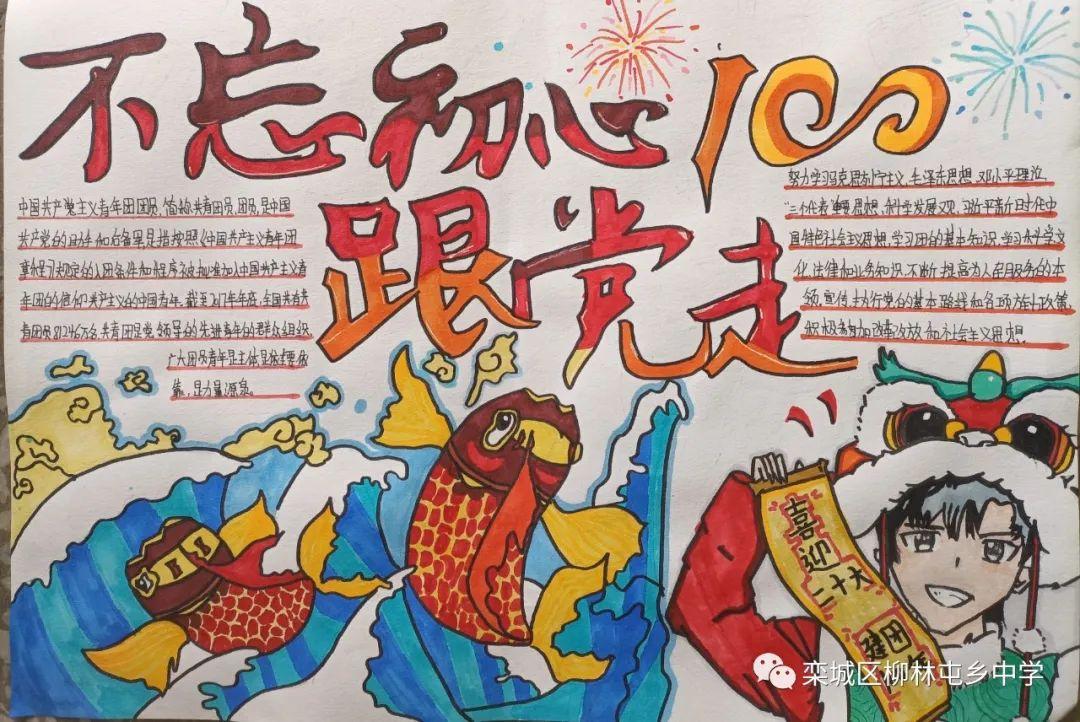 不忘初心 100
跟党走
中国共产党主义青年团团员,简称共青团员,团员,是中国
共产党的助手和后备军是指按照《中国共产主义青年团
章程》规定的入团条件和程序被批准加入中国共产主义青
年团的信仰共产主义的中国青年。截至2017年年底,全国共有共
青团员8124.6万名,共青团是党领导的先进青年的群众组织,
广大团员青年是主体是依靠
是力量源泉。
努力学习马克思列宁主义、毛泽东思想、邓小平理论、
"三个代表"重要思想、科学发展观、习近平新时代中
国特色社会主义思想,学习团的基本知识,学习科学文
化、法律和业务知识,不断提高为人民服务的本
领,宣传、执行党的基本路线和各项方针政策,
积极参加改革开放和社会主义
喜迎二十大
建团
栾城区柳林屯乡中学